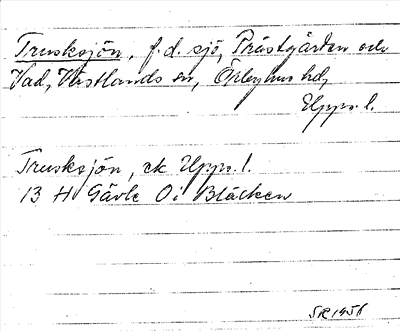 Trusksjön, f.d. sjö, Prästgården och
Vad, Västlands sn, Örbyhus hd,
Upps. l.
Trusksjön, ek Upps. l.
13 H Gävle Oi Bläcken
SR 1956